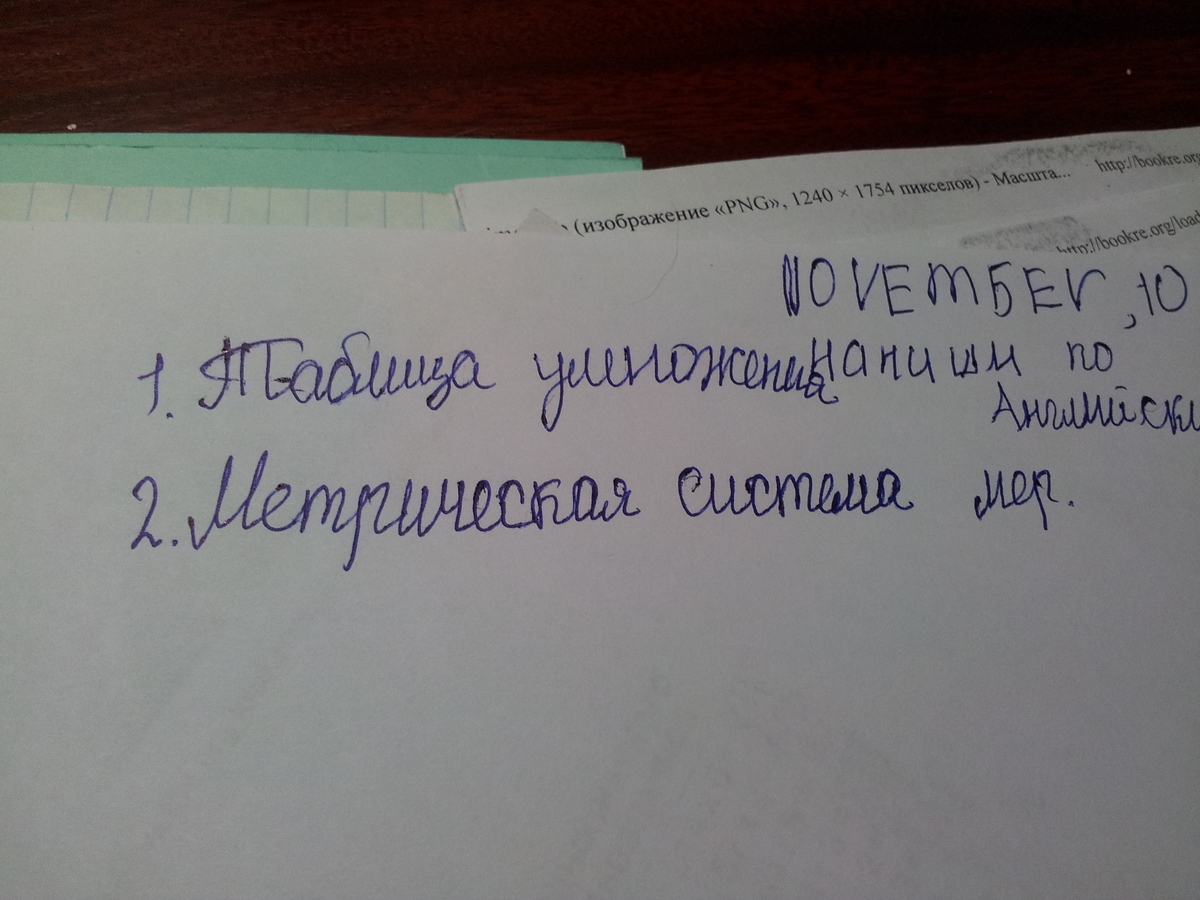 (изображение «PNG», 1240 × 1754 пикселов) - Масшта... http://bookre.org
http://bookre.org/load
NOVEMБER, 10
1. Таблица умножения напиши по
Английски
2. Метрическая система мер.